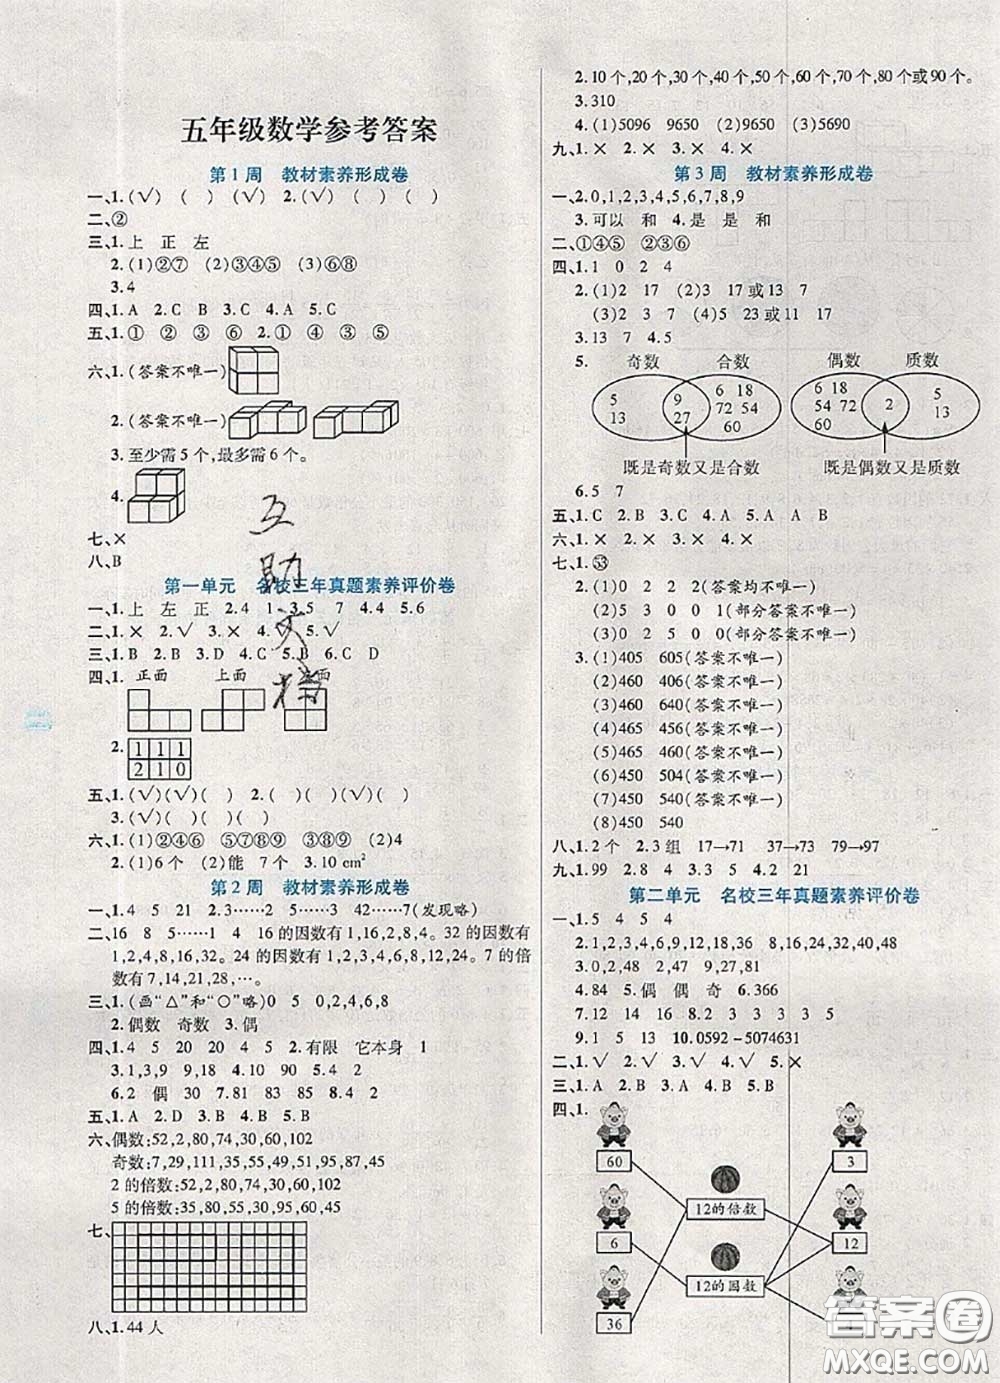 五年级数学参考答案
第1周 教材素养形成卷
一、1.(√) ( ) (√) 2.(√) ( ) ( )
二、②
三、1.上 正 左
2.(1)②⑦ (2)③④⑤ (3)⑥⑧
3.4
四、1.A 2.C B 3.A 4.A 5.C
五、1.① ② ⑥ 2.① ④ ③ ⑤
六、1.(答案不唯一)
2.(答案不唯一)
3.至少需5个,最多需6个。
4.
七、×
八、B
第一单元 名校三年真题素养评价卷
一、1.上 左 正 2.4 1 3.5 7 4.4 5.6
二、1.× 2.√ 3.× 4.√ 5.√
三、1.B 2.B 3.D 4.C 5.B 6.C D
四、1. 正面 上面 左面
2. 1 1 1
2 1 0
五、1.(√)(√)( ) 2.( )(√)( )( )
3.(√)( )( )( )
六、1.(1)②④⑥ ⑤⑦⑧⑨ ③⑧⑨ (2)4
2.(1)6个 (2)能 7个 3.10 cm²
第2周 教材素养形成卷
一、1.4 5 21 2.3……2 5……3 42……7(发现略)
二、16 8 5……1 4 16的因数有1,16,2,8,4。32的因数有
1,2,4,8,16,32。24的因数有1,2,3,4,6,8,12,24。7的倍
数有7,14,21,28,…。
三、1.(画“△”和“○”略)0 5 0,2,4,6,8
2.偶数 奇数 3.偶
四、1.4 5 20 20 4 5 2.有限 它本身 1
3.1,3,9 4.9 18 5.1,2,4,8
6.2 偶 30 7.81 8.90 9.85
五、1.A 2.D 3.B 4.A 5.B
六、偶数:52,2,80,74,30,60,102
奇数:7,29,111,35,55,51,95,87,45
2的倍数:52,2,80,74,30,60,102
5的倍数:35,80,55,30,95,60,45
七、
八、1.44人
2.10个,20个,30个,40个,50个,60个,70个,80个或90个。
3.310
4.(1)5096 9650 (2)5096 (3)5690
九、1.× 2.× 3.× 4.×
第3周 教材素养形成卷
一、1.× 2.0,1,2,3,4,5,6,7,8,9
3.可以 和 4.是 是 和
二、①④⑤ ②③⑥
四、1.1 0 2 4
2.(1)2 17 (2)3 17或13 7
(3)2 3 7 (4)5 23或11 17
3.13 7 4.5
5. 奇数 合数 偶数 质数
5 13 9 27 6 18 72 54 60
6 18 54 72 60 2 5 13
既是奇数又是合数 既是偶数又是质数
6.5 7
五、1.C 2.B 3.C 4.A A B
六、1.× 2.× 3.× 4.×
七、1.53
2.(1)5 2 0 1(答案均不唯一)
(2)5 3 0 0 1(部分答案不唯一)
(3)0 2 5 0 0(部分答案不唯一)
3.(1)405 605(答案不唯一)
(2)460 640(答案不唯一)
(3)460 640(答案不唯一)
(4)465 456(答案不唯一)
(5)465 405(答案不唯一)
(6)450 504(答案不唯一)
(7)450 540(答案不唯一)
(8)450 540
八、1.2个 2.3组 17→71 37→73 79→97
九、1.99 2.8 4 3.5 12 4.2 21
第二单元 名校三年真题素养评价卷
一、1.5 4 5 4
2.1,2,3,4,6,9,12,18,36 8,16,24,32,40,48
3.0,2,48 2,47 9,27,81
4.84 5.偶 偶 奇 6.366
7.12 14 16 8.2 3 3 3 3 5
9.1 5 13 11 10.0592-5074631
二、1.√ 2.√ 3.√ 4.√ 5.×
三、1.A 2.B 3.A 4.B 5.B
四、1.
60 3
12的倍数
6 12
12的因数
36
互助文档
答案圈
MXQE.COM